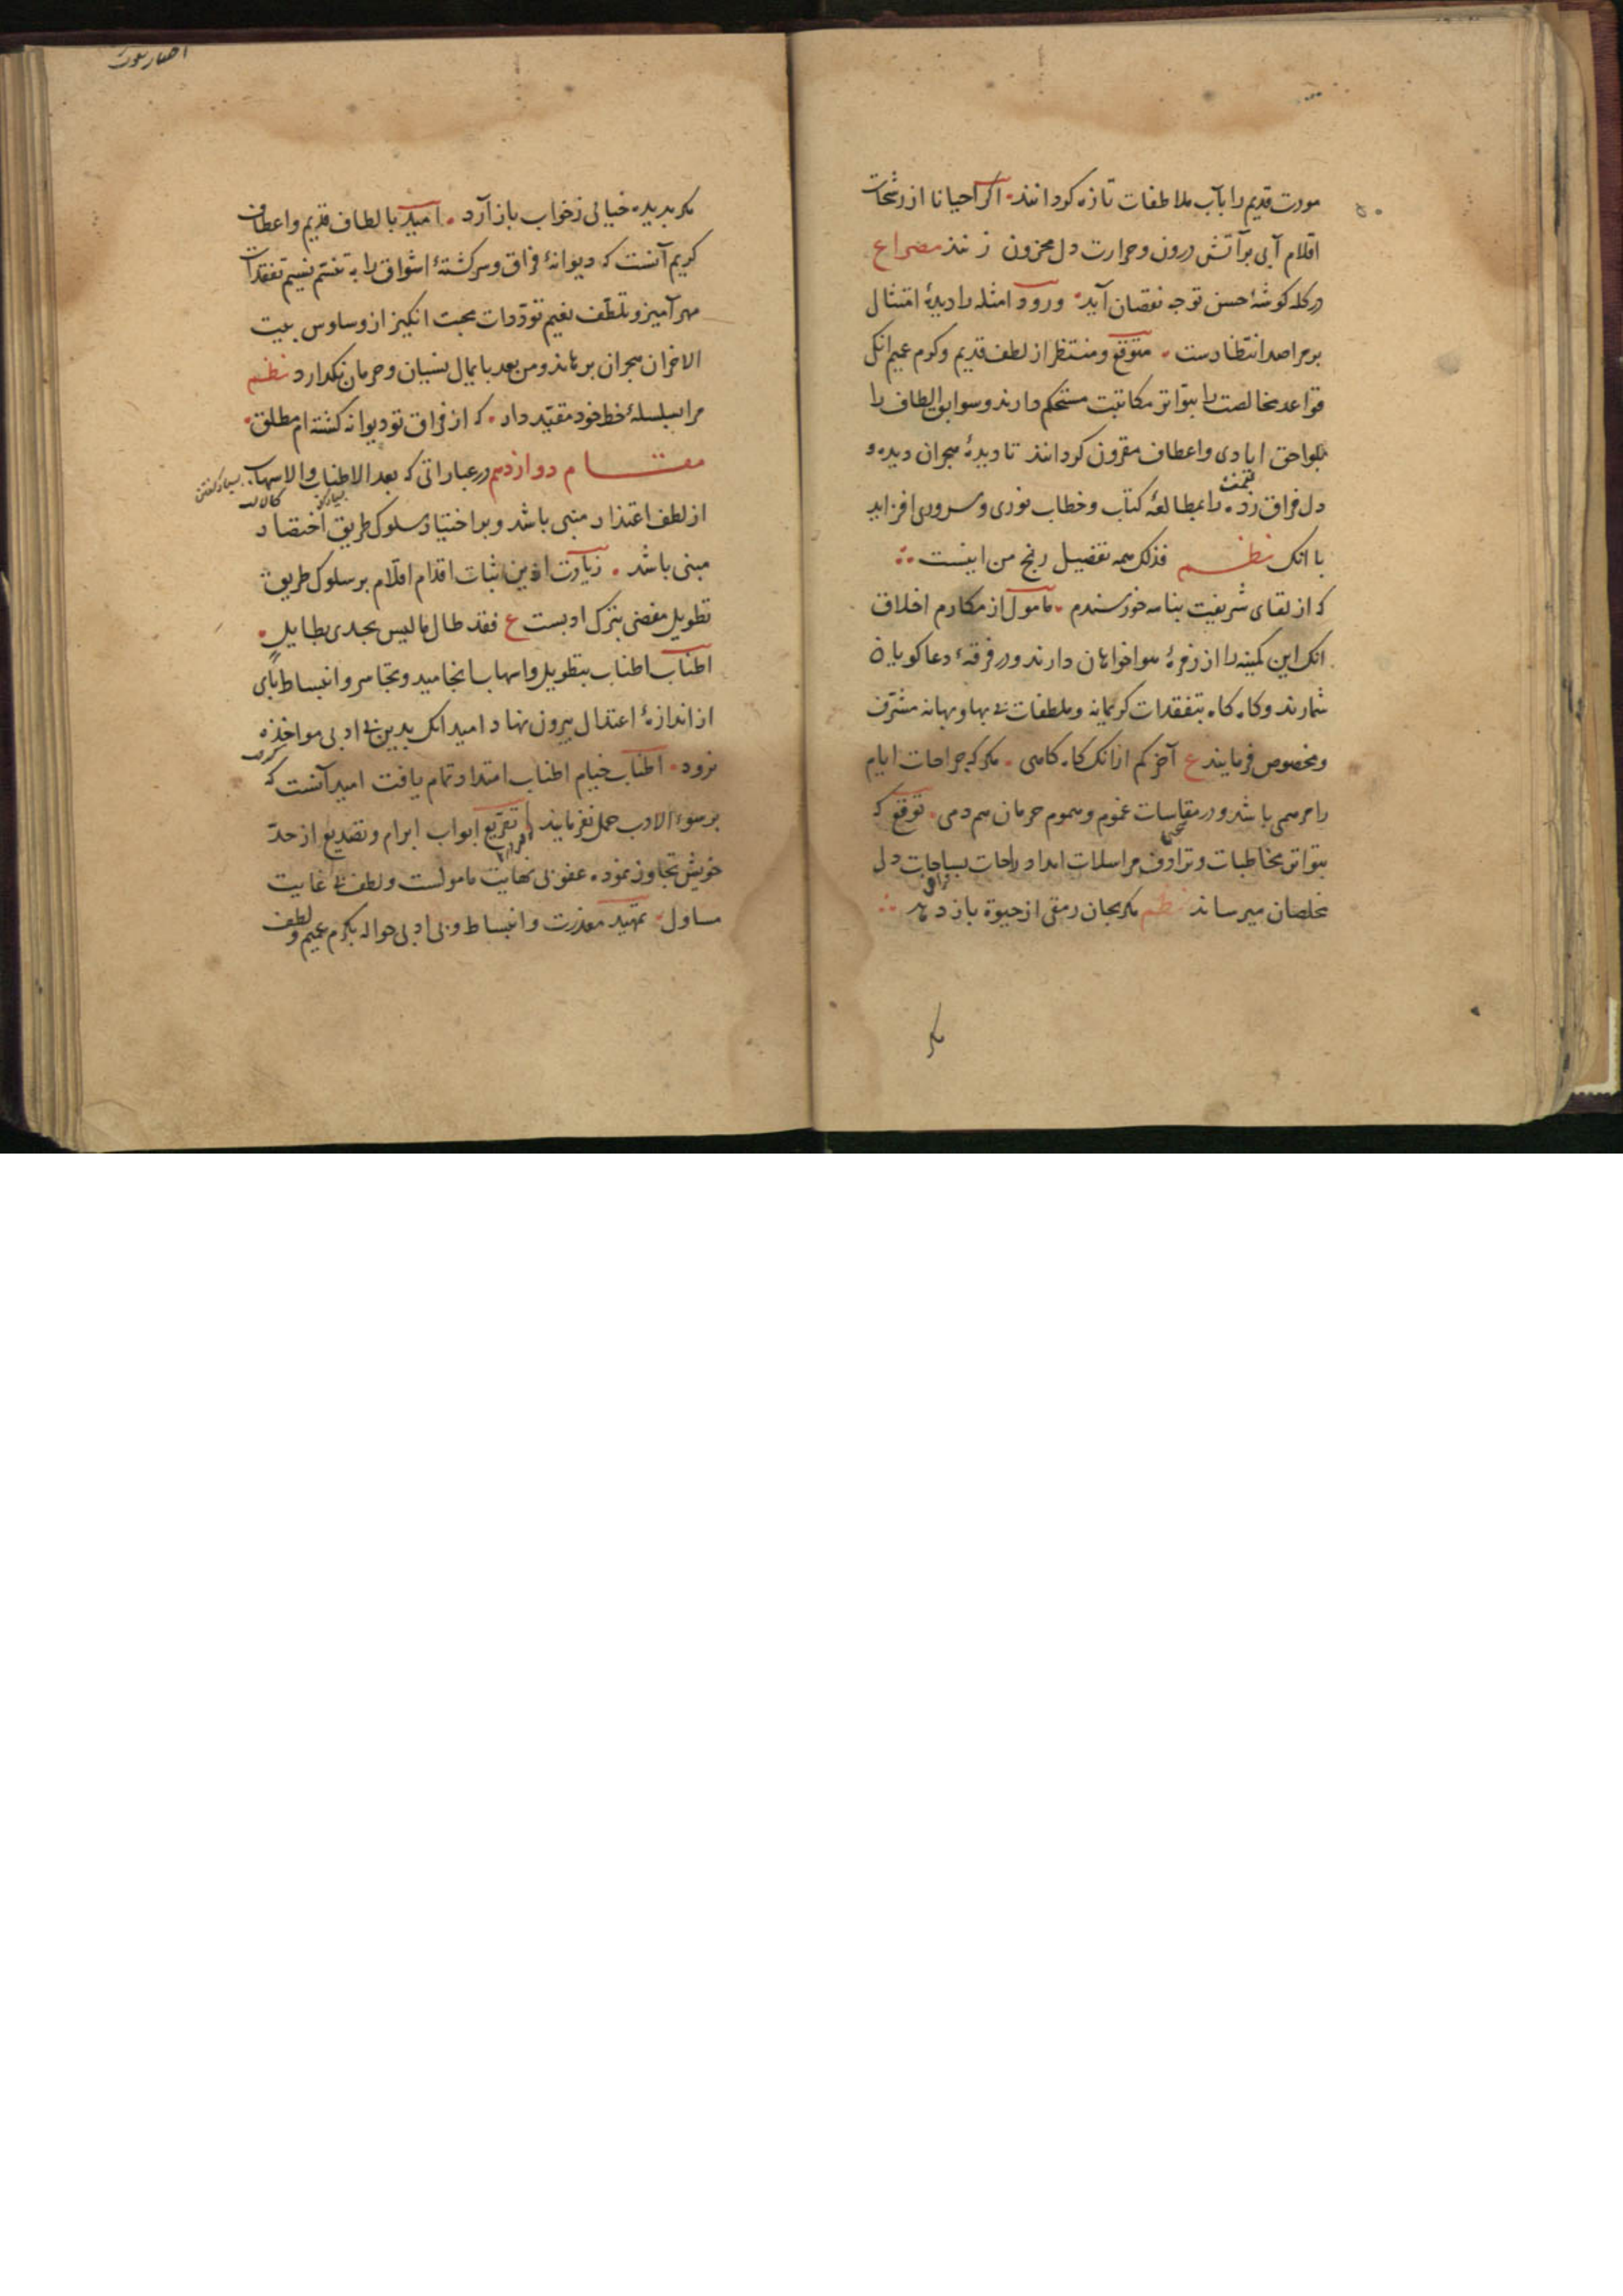 مودت قدیم را بآب ملاطفات تازه کردانند اکر احیانا از رشحات
اقلام آبی برآتش درون و حرارت دل محزون زنند مصراع
در کله کوشهٔ حسن توجه نقصان آید ورود امثله را دیدهٔ امتثال
بر مراصد انتظارست متوقع و منتظر از لطف قدیم و کرم عمیم انک
قواعد مخالصت را بتواتر مکاتبت مستحکم دارند و سوابق الطاف را
بلواحق ایادی و اعطاف مقرون کردانند تا دیدهٔ هجران دیده و
دل فراق زده را بمطالعهٔ کتاب و خطاب نوری و سروری افزاید
با انک نظم فذلک همه تفضیل رنج من اینست
که از لقای شریفت بنامه خورسندم مامول از مکارم اخلاق
انک این کمینه را از زمرهٔ هواخواهان دارند و در فرقهٔ دعاکویان
شمارند و کاه کاه بتفقدات کریمانه و ملطفات بی بها و بهانه مشرف
و مخصوص فرمایند ع آخر کم ازانک کاه کاهی مکر که جراحات ایام
را مرهمی باشد و در مقاسات غموم و هموم حرمان همدمی توقع که
بتواتر مخاطبات و ترادف مراسلات امداد راحات بساحات دل
مخلصان میرساند نظم مکر بجان رمقی از حیوة باز دهد
مکر
مکر بدیده خیالی ز خواب باز آرد امید بالطاف قدیم و اعطاف
کریم آنست که دیوانهٔ فراق و سرکشتهٔ اشواق را به تنسم نسیم تفقدات
مهرآمیز و تلطف نغیم توددات محبت انکیز از وساوس بیت
الاحزان هجران برهاند و من بعد پایمال نسیان و حرمان نکذارد نظم
مرا بسلسلهٔ خط خود مقید دار که از فراق تو دیوانه کشته ام مطلق
مقام دوازدهم در عباراتی که بعد الاطناب والاسهاب
از لطف اعتذار منبی باشد و بر اختیار سلوک طریق اختصار
مبنی باشد زیادت ازین ثبات اقدام اقلام بر سلوک طریق
تطویل مفضی بترک ادبست ع فقد طال ما لیس یجدی بطایل
اطناب اطناب بتطویل و اسهاب انجامید و تجاسر و انبساط پای
از اندازهٔ اعتدال بیرون نهاد امید انک بدین بی ادبی مواخذه
نرود اطناب خیام اطناب امتداد تمام یافت امید آنست که
بر سوء الادب حمل نفرمایند تقریع ابواب ابرام و تصدیع از حد
خویش تجاوز نموده عفو بی نهایت مامولست و لطف بی غایت
مساول تمهید معذرت و انبساط و بی ادبی حواله بکرم عمیم و لطف